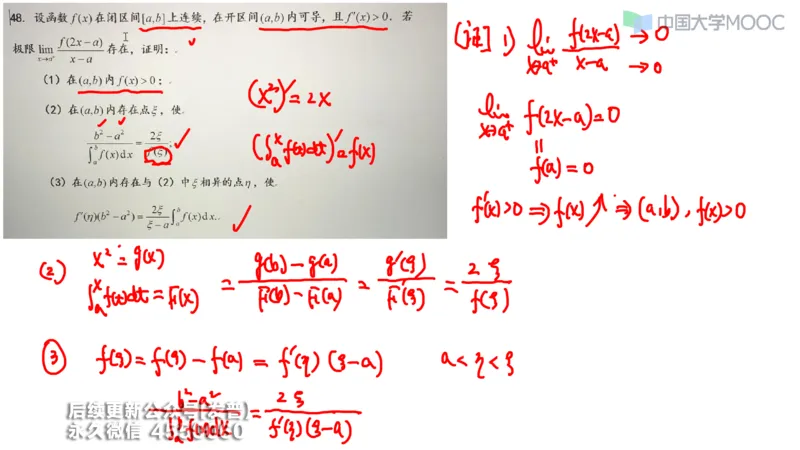 48. 设函数 f(x) 在闭区间[a,b]上连续，在开区间(a,b)内可导，且 f'(x)>0．若
极限 lim_{x→a⁺} f(2x−a)/(x−a) 存在，证明：
（1）在(a,b)内 f(x)>0；
（2）在(a,b)内存在点ξ，使
(b²−a²)/∫_a^b f(x)dx = 2ξ/f(ξ);
（3）在(a,b)内存在与（2）中ξ相异的点η，使
f'(η)(b²−a²)= 2ξ/(ξ−a) ∫_a^b f(x)dx.
(x²)' = 2x
(∫_a^x f(t)dt)' = f(x)
中国大学MOOC
[证] 1) lim_{x→a⁺} f(2x−a)/(x−a) →0 →0
lim_{x→a⁺} f(2x−a)=0
=
f(a)=0
f'(x)>0 ⇒ f(x)↗ ⇒ (a,b), f(x)>0
(2) x² = g(x)
∫_a^x f(t)dt = F(x)
= (g(b)−g(a))/(F(b)−F(a)) = g'(ξ)/F'(ξ) = 2ξ/f(ξ)
③ f(ξ)=f(ξ)−f(a) = f'(η)(ξ−a) a<η<ξ
(b²−a²)/∫_a^b f(x)dx = 2ξ/(f'(η)(ξ−a))
后续更新公众号[发普]
永久微信